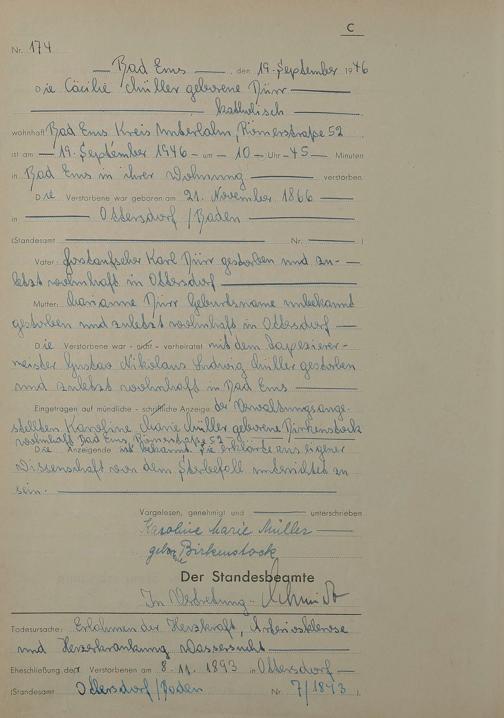 C
Nr. 174
Bad Ems, den 19. September 1946
Die Cäcilie Müller geborene Dürr
katholisch
wohnhaft Bad Ems Kreis Unterlahn, Römerstraße 52
ist am 19. September 1946 um 10 Uhr 45 Minuten
in Bad Ems in ihrer Wohnung verstorben.
Die Verstorbene war geboren am 21. November 1866
in Ottersdorf/Baden
(Standesamt Nr. )
Vater: Karl Dürr gestorben und zu-
letzt wohnhaft in Ottersdorf
Mutter: Marianne Dürr Geburtsname unbekannt
gestorben und zuletzt wohnhaft in Ottersdorf
Die Verstorbene war - nicht - verheiratet mit dem Tapezierer-
meister Gustav Nikolaus Ludwig Müller gestorben
und zuletzt wohnhaft in Bad Ems
Eingetragen auf mündliche - schriftliche Anzeige der Verwaltungsange-
stellten Karoline Marie Müller geborene Birkenstock
wohnhaft Bad Ems, Römerstraße 52
Die Anzeigende ist bekannt. Sie erklärte aus eigener
Wissenschaft von dem Sterbefall unterrichtet zu
sein.
Vorgelesen, genehmigt und unterschrieben
Karoline Marie Müller
geb. Birkenstock
Der Standesbeamte
In Vertretung Schmidt
Todesursache: Erlahmen der Herzkraft, Arteriosklerose
und Herzerkrankung Wassersucht
Eheschließung der Verstorbenen am 8.11.1893 in Ottersdorf
(Standesamt Ottersdorf/Baden Nr. 7/1893 )